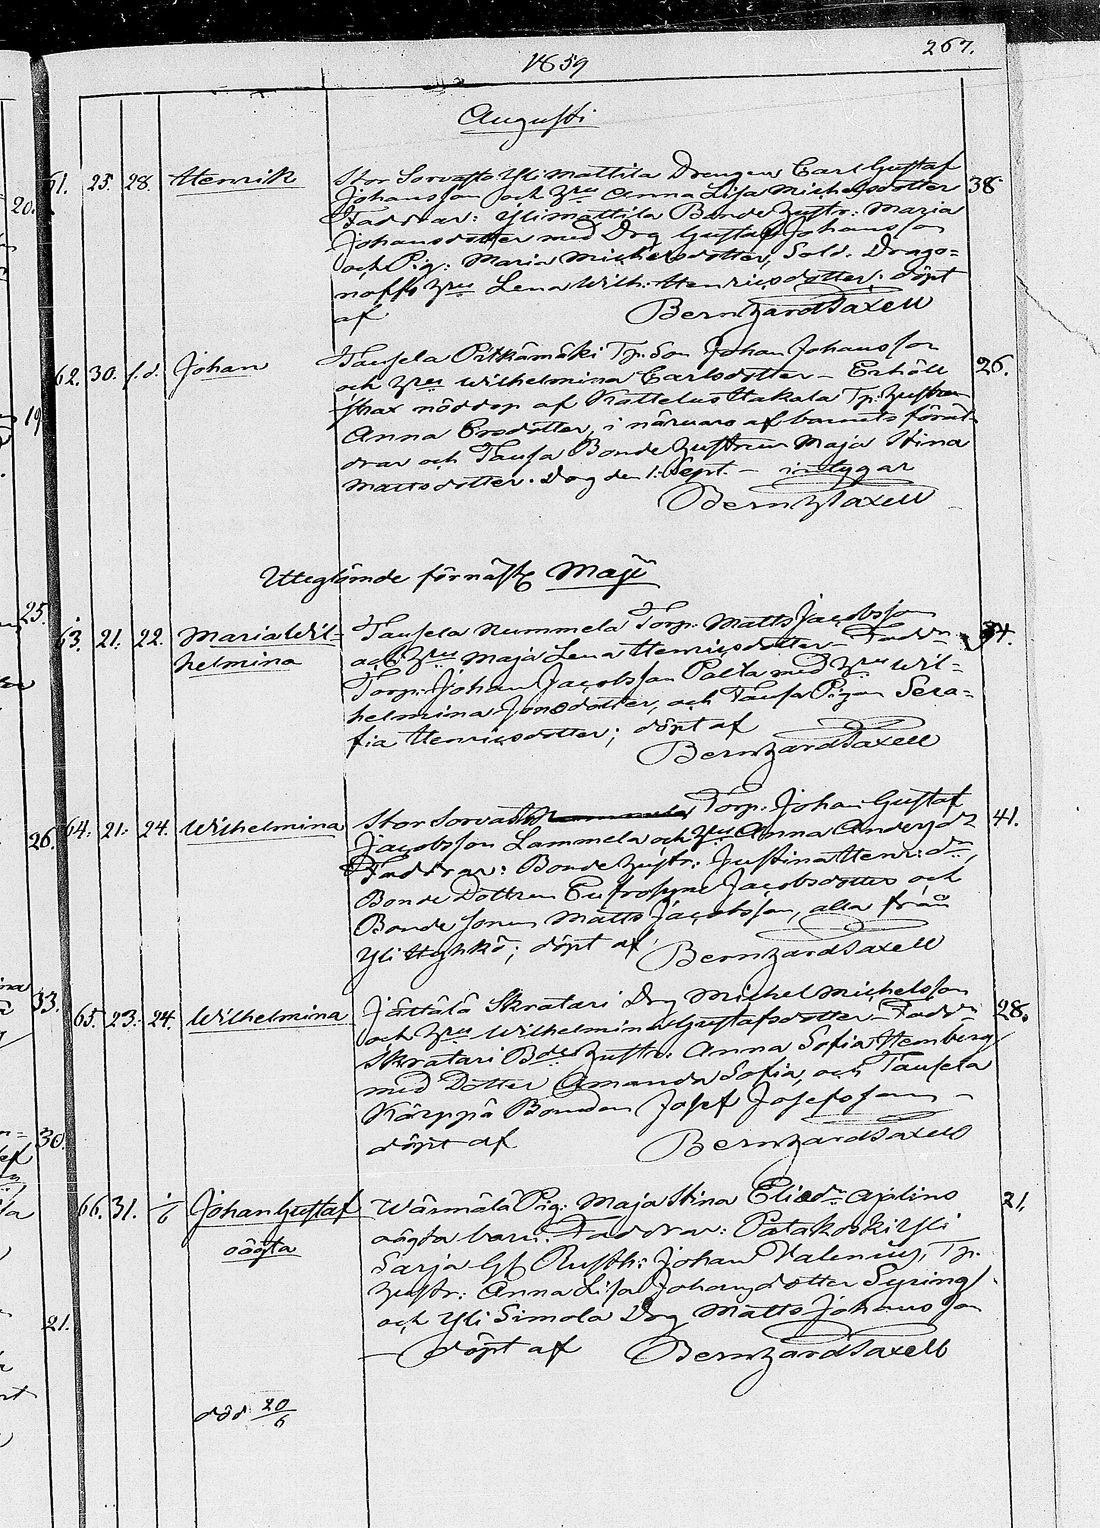 267.
1859
Augusti
61. 25. 28. Henrik Stor Sorvasto Yli Mattila Drengen Carl Gustaf 38
Johansson och hru Anna Lisa Michelsdotter
Faddrar: Yli Mattila Bonde hustr: Maria
Johansdotter med Drg Gustaf Johansson
och Pig: Maria Michelsdotter, Sold. Drago=
noffs hru Lena Wilh: Henricsdotter; döpt
af Bernhard Saxell
62. 30. s.d. Johan Taufela Pitkämäki Tp. Son Johan Johansson 26.
och hru Wilhelmina Carlsdotter – Erhöll
strax nöddop af Tp. hustrun
Anna Ersdotter, i närvaro af barnets föräl=
drar och Taufa Bonde hustrun Maja Stina
Mattsdotter. Dog den 1. Sept. – intygar
Bernh Saxell
Uteglömde förnäst Maji
63. 21. 22. Maria Wil= Taufela Nummela Torp: Matts Jacobsson 34.
helmina och hru Maja Lena Henricsdotter – Faddr:
Torp: Johan Jacobsson Palta med hru Wil=
helmina Jonsdotter, och Taufa Pigan Sera=
fia Henricsdotter; döpt af
Bernhard Saxell
64. 21. 24. Wilhelmina Stor Sorvasto Torp: Johan Gustaf 41.
Jacobsson Lammela och hru Anna Andersdr
Faddrar: Bonde hustr: Justina Henr: dr,
Bonde Dottren Eufrosyne Jacobsdotter och
Bonde sonen Matts Jacobsson, alla från
Yli Hyhkö; döpt af Bernhard Saxell
65. 23. 24. Wilhelmina Jättälä Skratari Drg Michel Michelsson 28.
och hru Wilhelmina Gustafsdotter – Faddr:
Skratari Bde hustr: Anna Sofia Hemberg
med Dotter Amanda Sofia, och Taufela
Kärppä Bonden Josef Josefsson –
döpt af Bernhard Saxell
66. 31. 1/6 Johan Gustaf Wärmälä Pig: Maja Stina Eliedr Applins 21.
oägta oägta barn. Faddrar: Patakoski Yli
Sarja Gl Rusth: Johan Valenius, Tp.
hustr: Anna Lisa Johansdotter Syring
och Yli Simola Drg Matts Johansson
– döpt af Bernhard Saxell
död 20/6